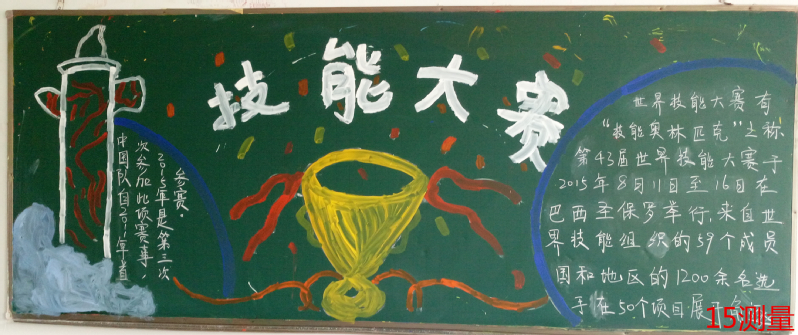 技能大赛
中国队自2011年首
次参加此项赛事，
2015年是第三次
参赛。
世界技能大赛有
“技能奥林匹克”之称
第43届世界技能大赛于
2015年8月11日至16日在
巴西圣保罗举行，来自世
界技能组织的59个成员
国和地区的1200余名选
手在50个项目展
15测量